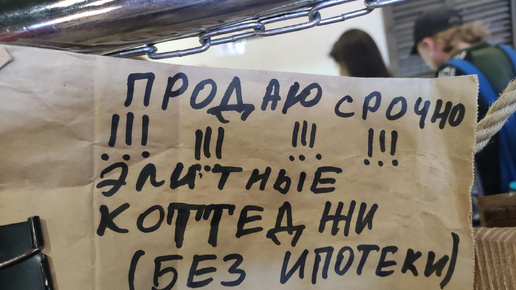 ПРОДАЮ СРОЧНО
!!! !!! !!! !!!
ЭЛИТНЫЕ
КОТТЕДЖИ
(БЕЗ ИПОТЕКИ)